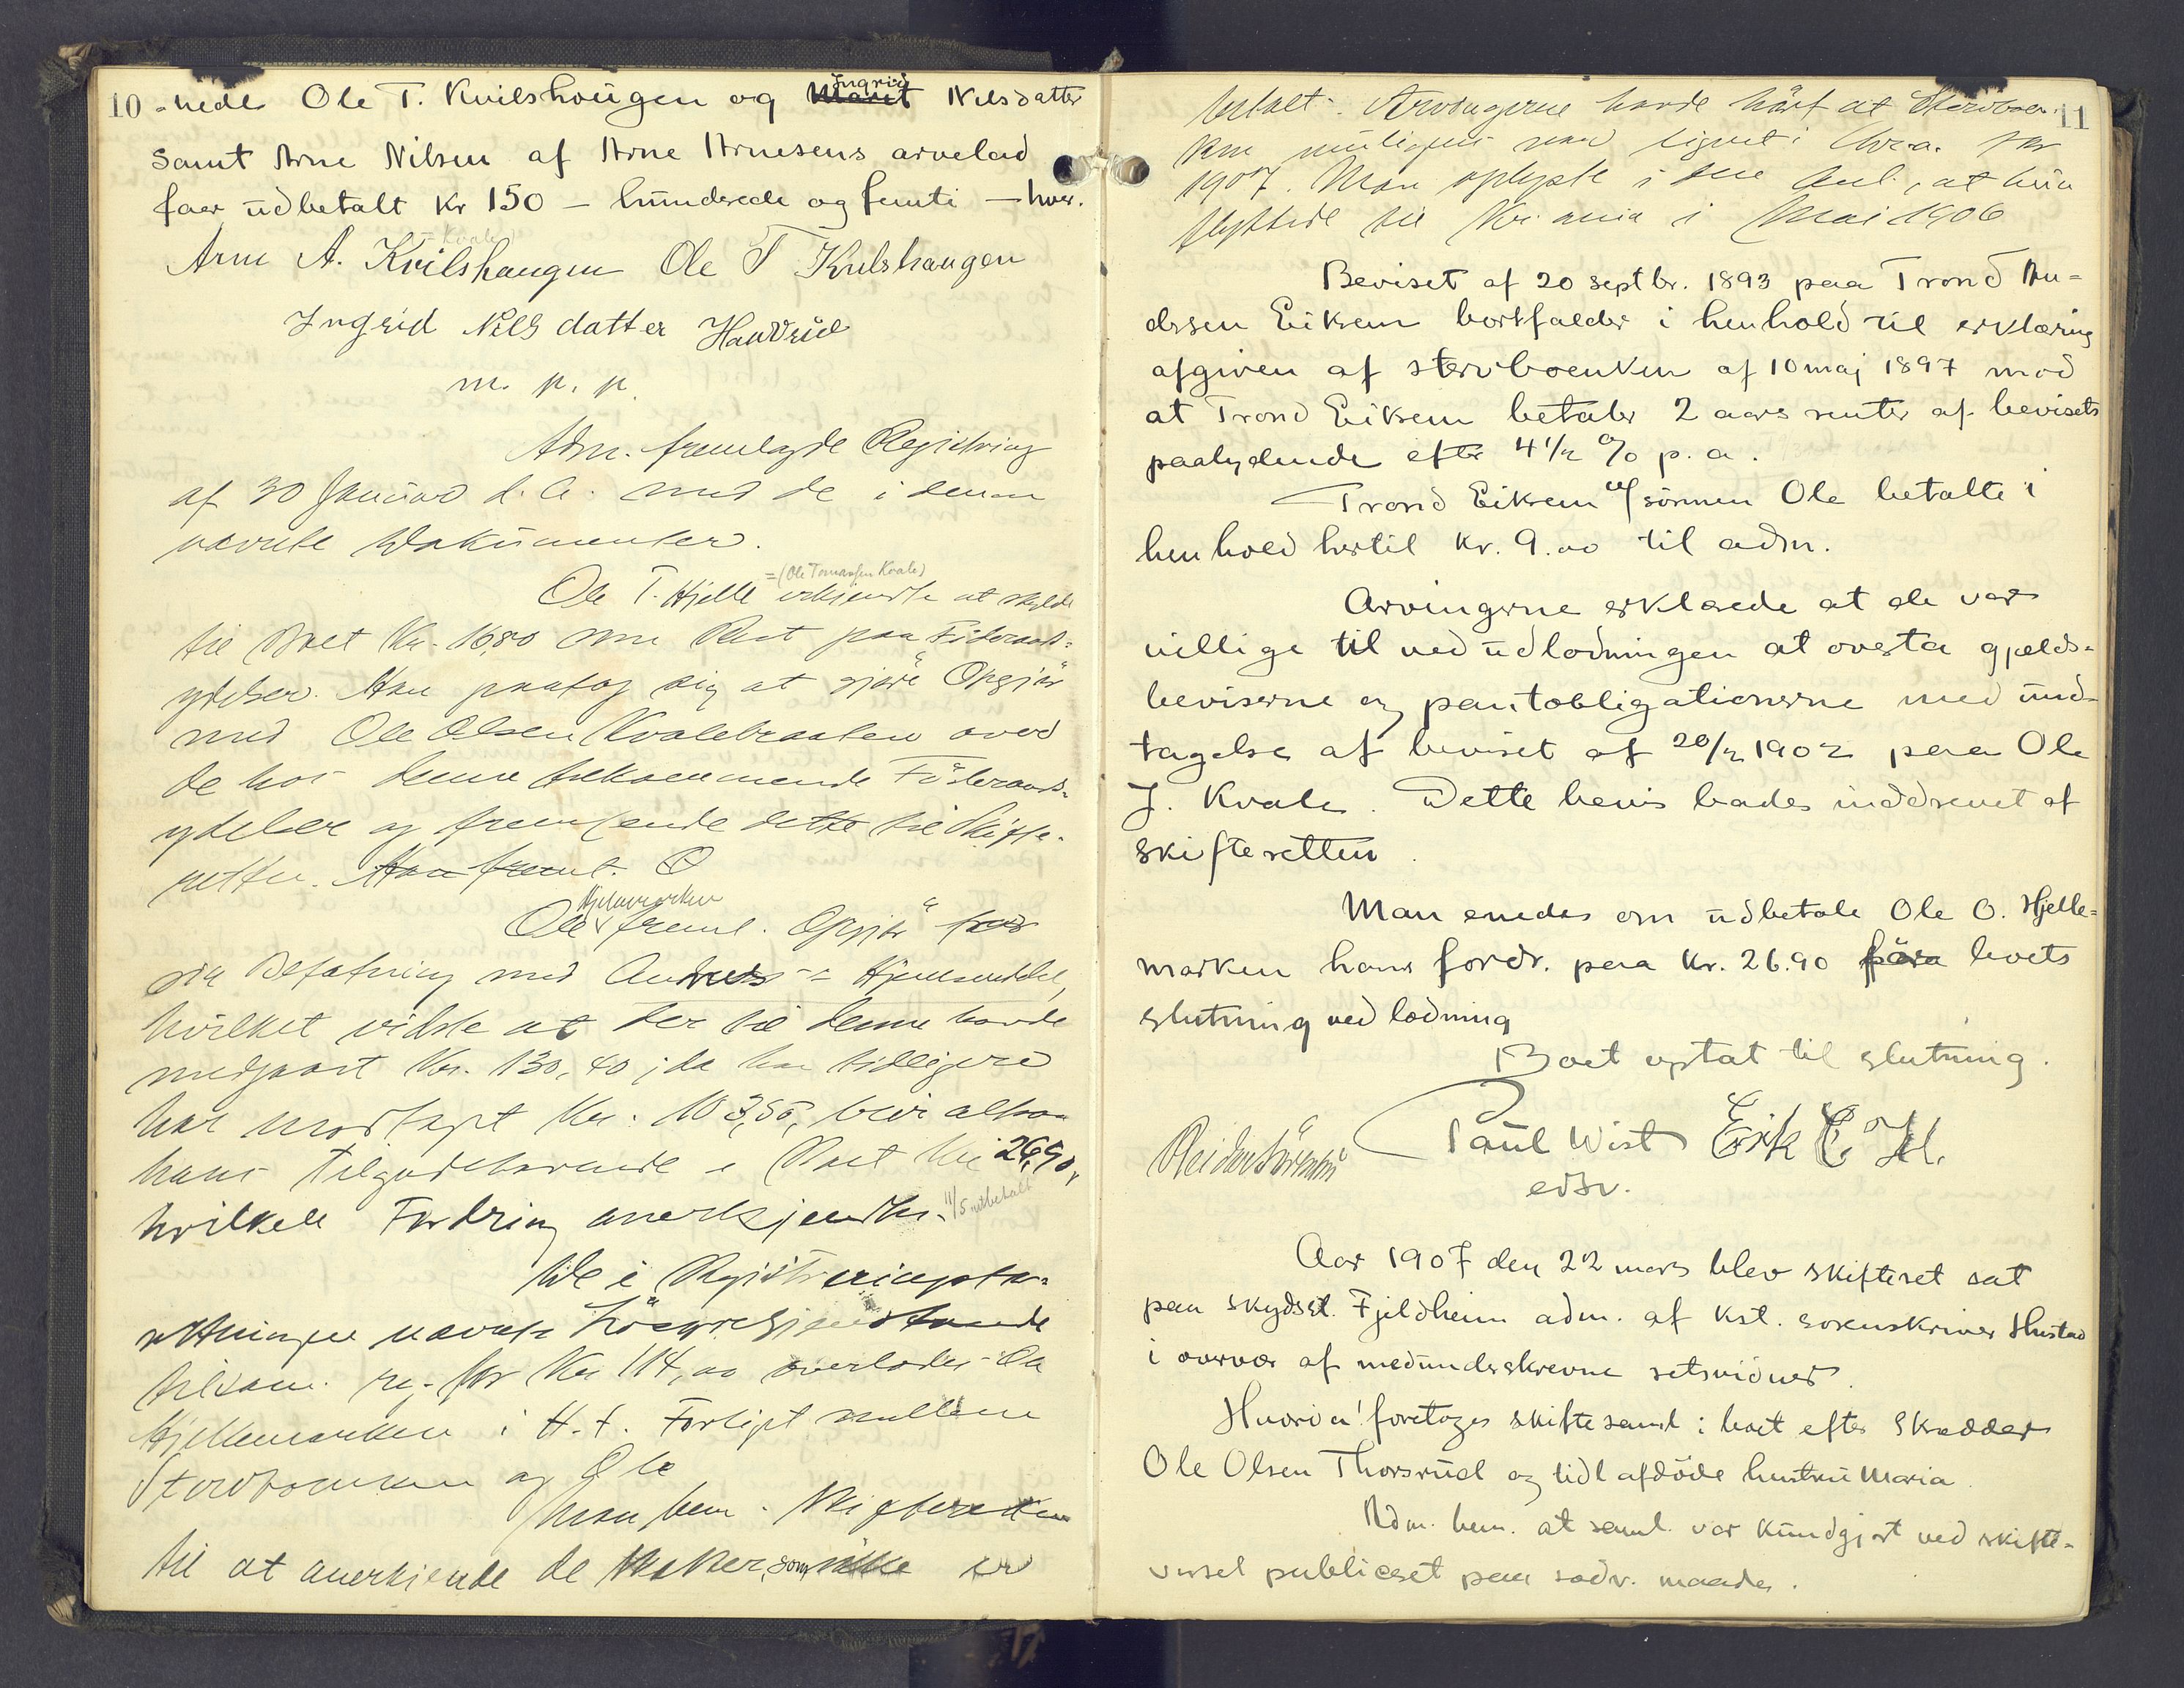 10 -nede Ole T. Kvilshougen og Ingrid Nilsdatter
samt Arne Nilsen af Arne Arnesens arvelod
faar udbetalt Kr 150 – hundrede og femti – hver.
= Kvale
Arne A. Kvilshaugen Ole T Kvilshaugen
Ingrid Nilsdatter Haadrud
m. p. p.
Adm. fremlagde Registring
af 30 Januar d. A. med de i denne
nævnte Dokumenter.
=(Ole Tomassen Kvale)
Ole T. Hjelle erkjendte at skylde
til Boet Kr. 16,80 som Rest paa Föderaads-
ydelser. Han paatog sig at gjöre Opgjör
med Ole Olsen Kvalebraaten over
de hos denne tilkommende Föderaads-
ydelser og fremsende dette til Skifte-
retten. Han freml. O
Hjelmerken
Ole freml. Opgjör for
sin Befatning med Hjemsendel,
hvilket viste at der til denne havde
medgaaet Kr. 130,40; da han tidligere
har modtaget Kr. 103,50, blir altsaa
hans Tilgodehavende i Boet Kr 26,90,
hvilken Fordring anerkjendtes. 11/5 udbetalt
De i Registreringsfor-
retningen nævnte
tilsam. reg. for Kr 114,00 overlodes Ole
Hjellemarken i H. t. Forliget mellem
Sterboenken og Ole
Man bem. Skifteretten
til at anerkjende de som ikke er
11
betalt. Arvingerne havde hört at Sterboen-
ken muligens var lignet i Kr.a. for
1907. Man oplyste i den Anl., at hun
flyttede til Kr.ania i Mai 1906
Beviset af 20 septbr. 1893 paa Trond An-
dersen Eiksem bortfalder i henhold til erklæring
afgiven af sterboenken af 10 maj 1897 mod
at Trond Eiksem betaler 2 aars renter af bevisets
paalydende efter 4 1/2 % p. a.
Trond Eiksem v/ sönnen Ole betalte i
henhold hertil kr. 9.00 til adm.
Arvingerne erklærede at de var
villige til ved udlodningen at overta gjælds-
beviserne og pantobligationerne med und-
tagelse af beviset af 20/12 1902 paa Ole
J. Kvale. Dette bevis bades inddrevet af
skifteretten.
Man enedes om udbetale Ole O. Hjelle-
marken hans fordr. paa kr. 26.90 före boets
slutning ved lodning
Boet optat til slutning.
Paul Wist Erik E. H.
edsv.
Aar 1907 den 22 mars blev skifteret sat
paa skydsst. Fjeldheim adm. af kst. sorenskriver Hustad
i overvær af medunderskrevne retsvidner.
Hvorda! foretoges skiftesaml. i boet efter Skrædder
Ole Olsen Thorsrud og tidl afdöde hustru Maria.
Adm. bem. at saml. var kundgjort ved skifte-
varsel publiceret paa sædv. maade.